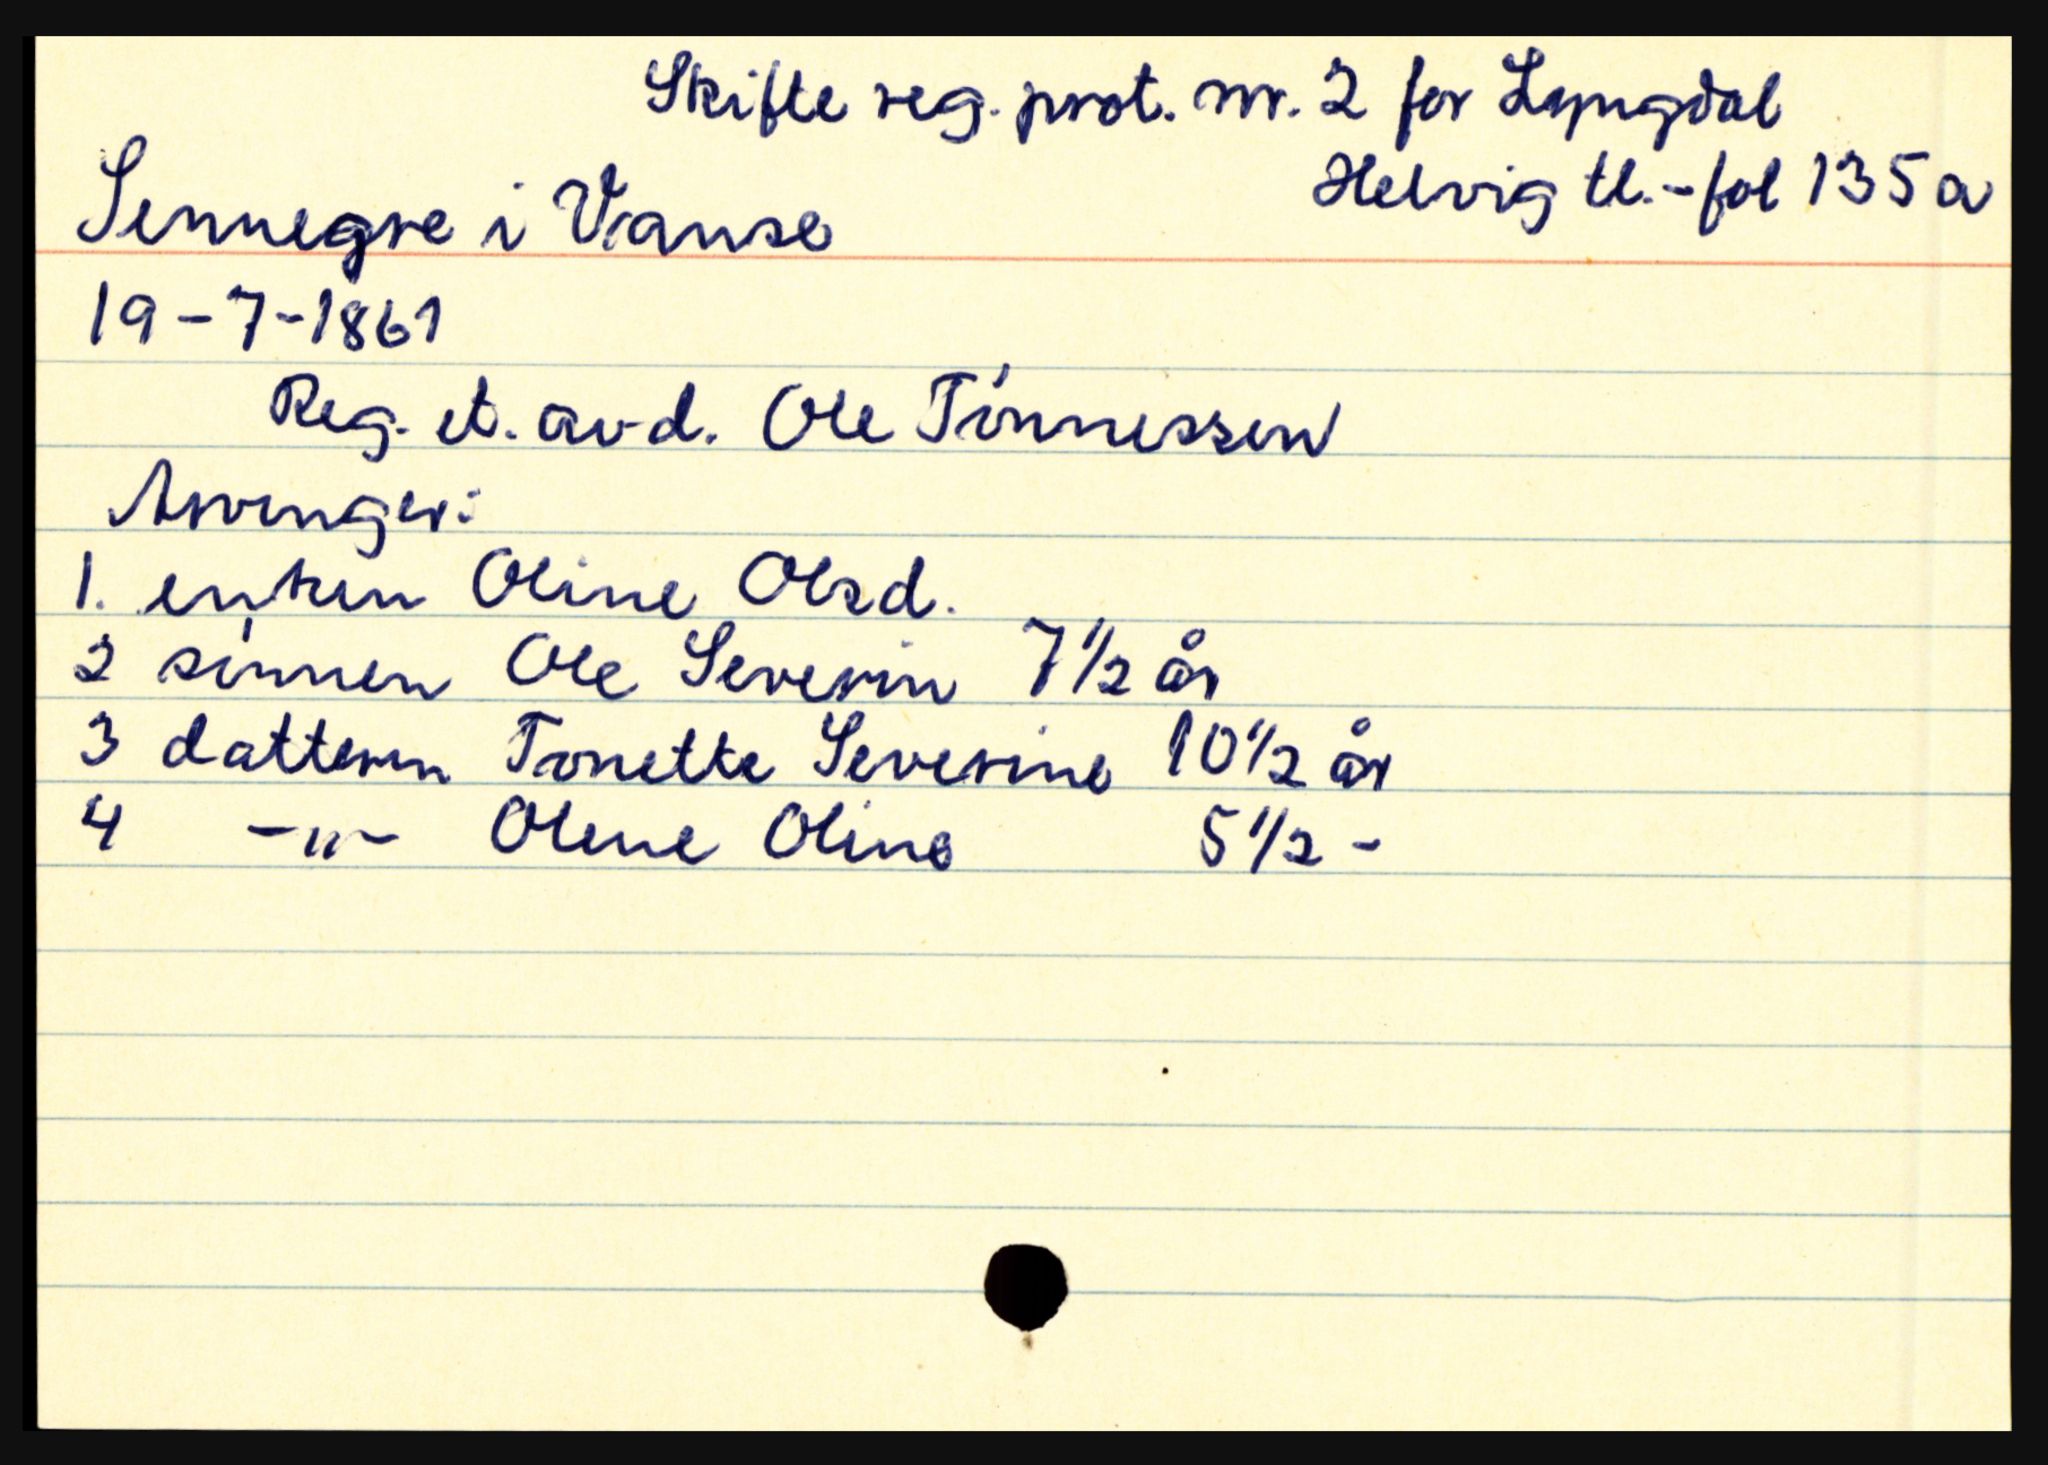 Skifte reg. prot. nr. 2 for Lyngdal
Helvig tl. - fol 135 a
Sennegre i Vanse
19 - 7 - 1861
Reg. et. av-d. Ole Tónnessen
Arvinger:
1. enken Oline Olsd.
2 sónnen Ole Severin 7 1/2 år
3 datteren Tonette Severine 10 1/2 år
4 -"- Olene Oline 5 1/2 -